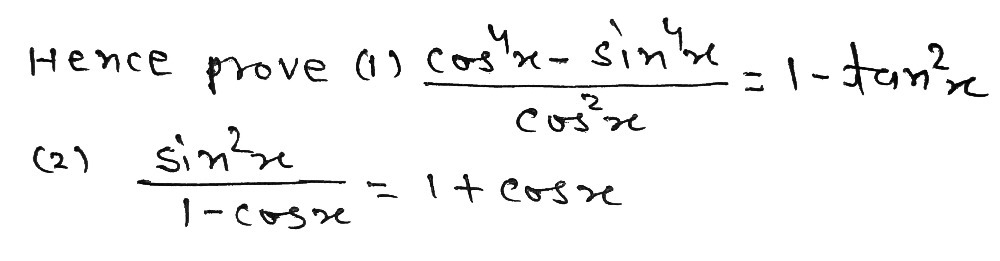 Hence prove (1) \frac{cos^4x - sin^4x}{cos^2x} = 1 - tan^2x
(2) \frac{sin^2x}{1 - cosx} = 1 + cosx